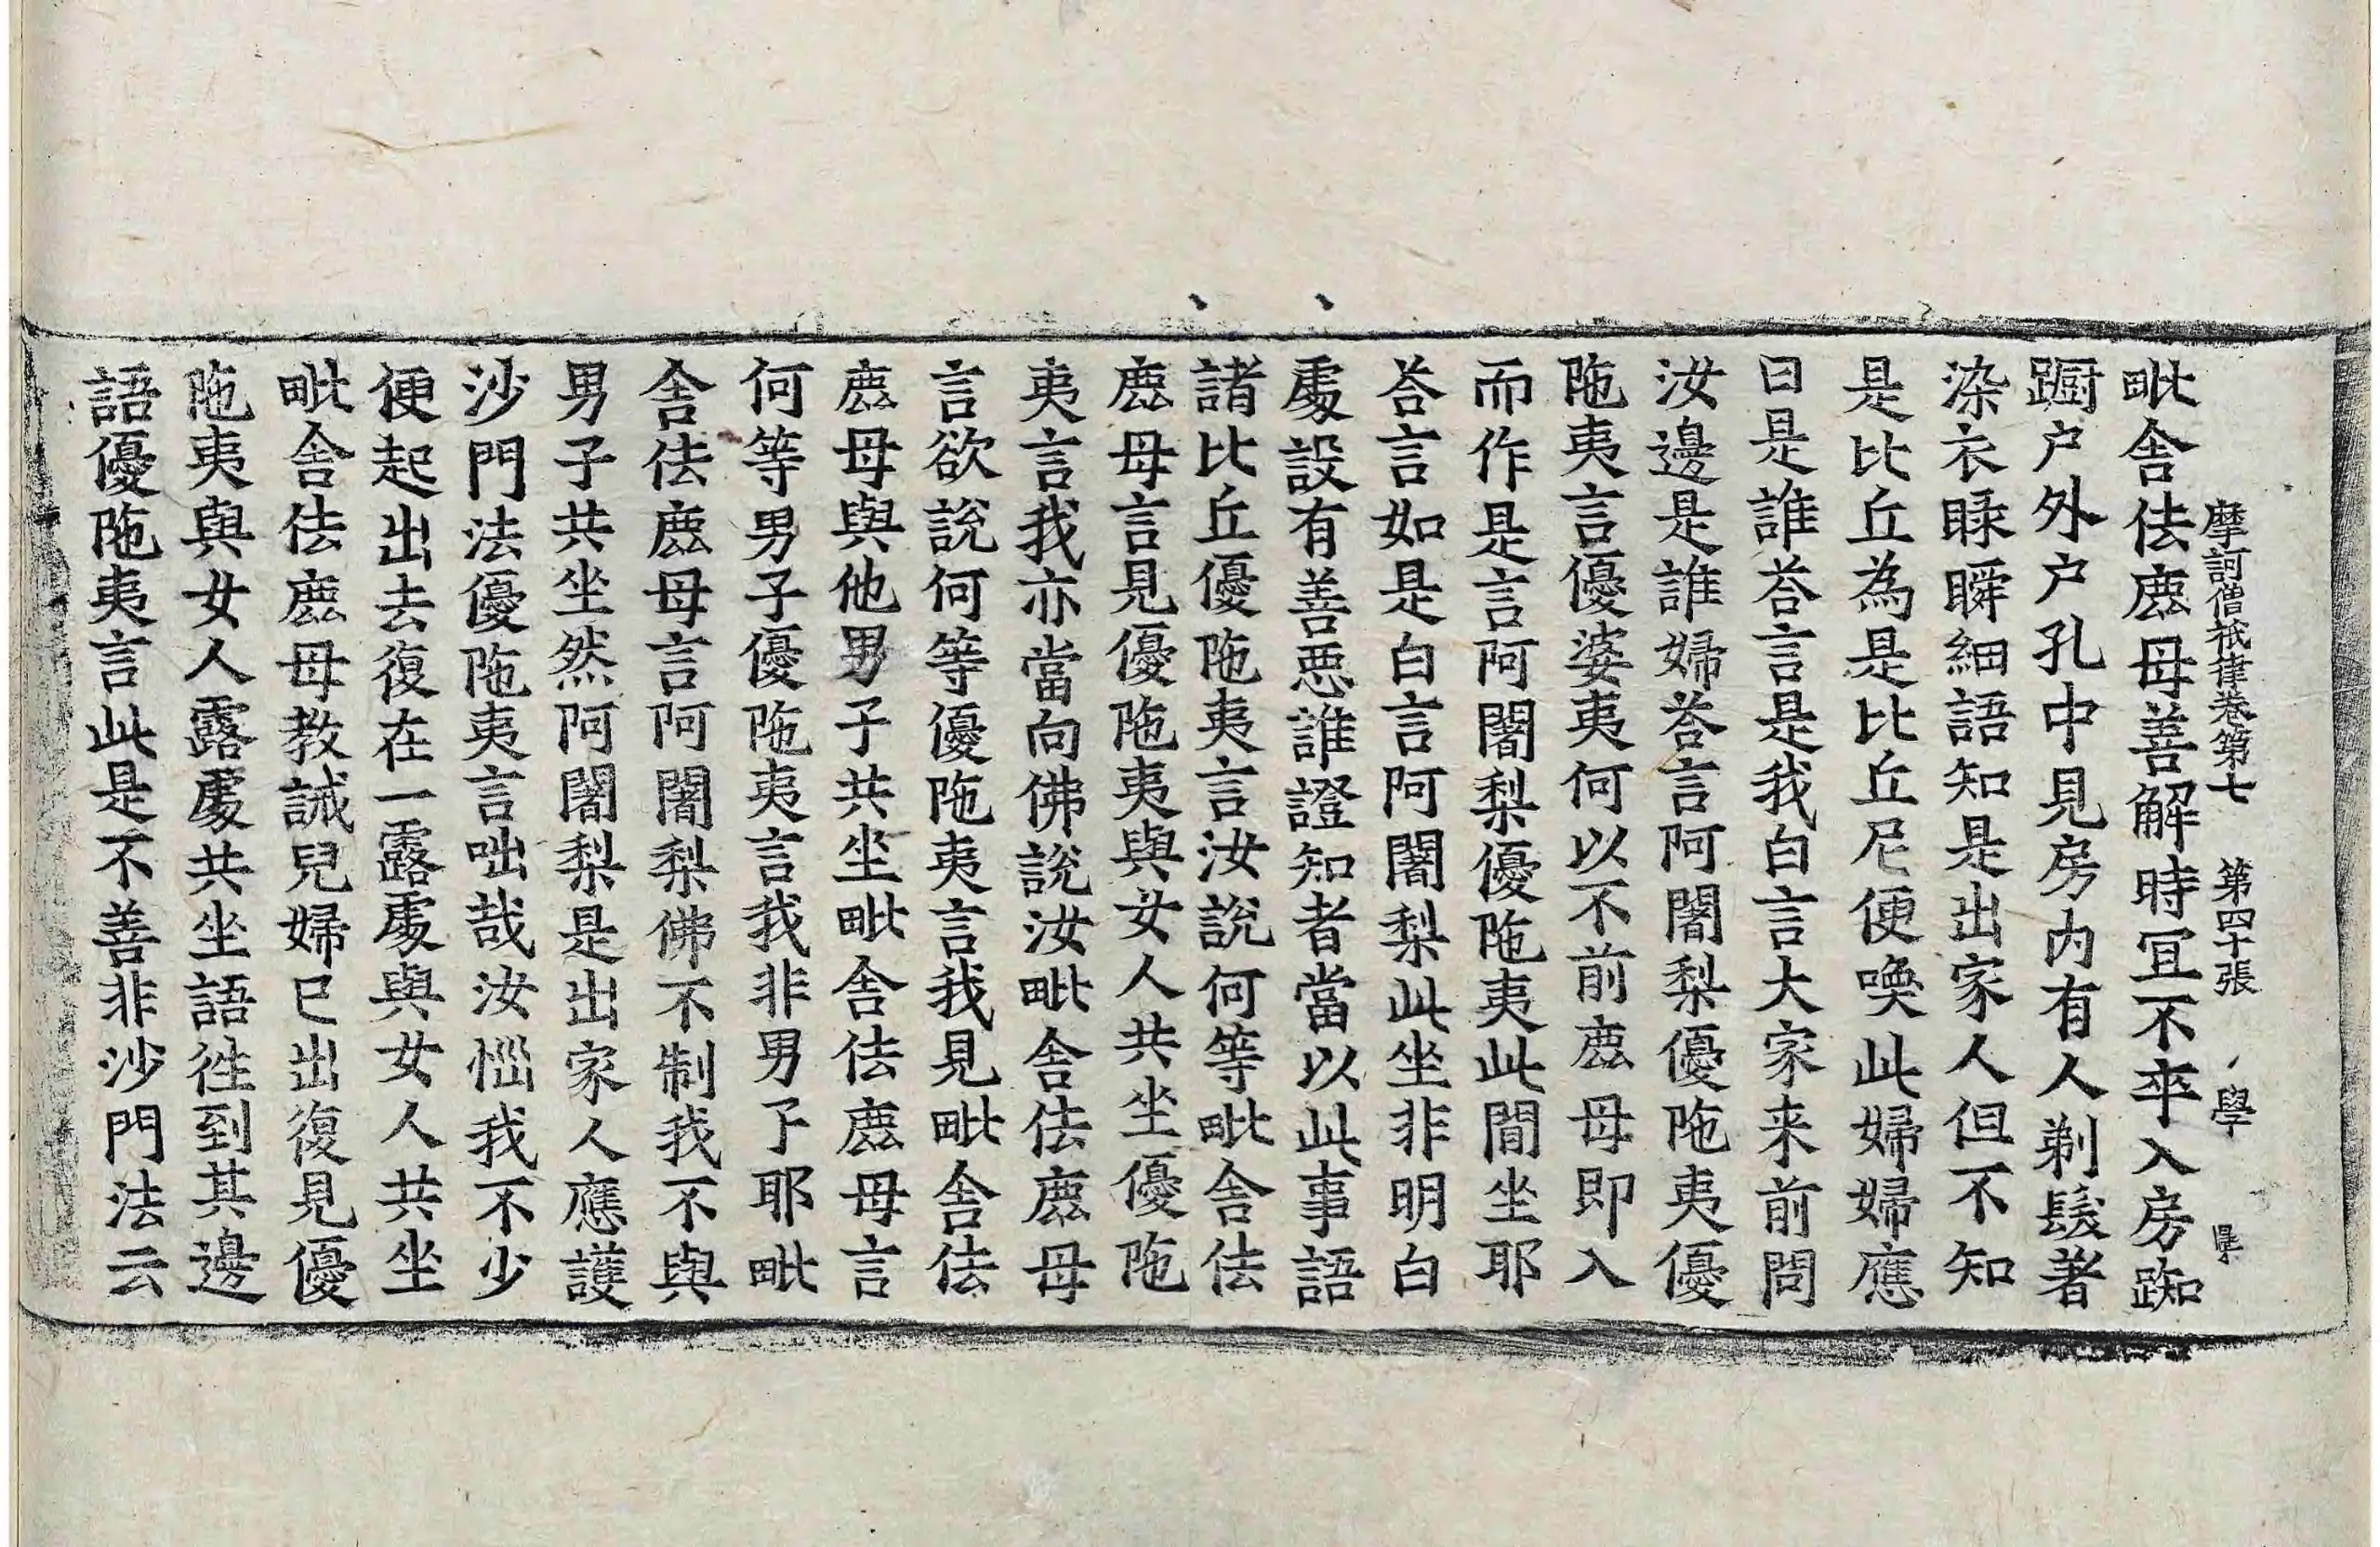 摩訶僧祇律卷第七 第四十張 學
毗舍佉鹿母善解時冝不卒入房踟
蹰户外户孔中見房内有人剃髮著
染衣𥆧瞬細語知是出家人但不知
是比丘為是比丘尼便喚此婦婦應
曰是誰荅言是我白言大家来前問
汝邊是誰婦荅言阿闍梨優陁夷優
陁夷言優婆夷何以不前鹿母即入
而作是言阿闍梨優陁夷此間坐耶
荅言如是白言阿闍梨此坐非明白
處設有善惡誰證知者當以此事語
諸比丘優陁夷言汝說何等毗舍佉
鹿母言見優陁夷與女人共坐優陁
夷言我亦當向佛說汝毗舍佉鹿母
言欲說何等優陁夷言我見毗舍佉
鹿母與他男子共坐毗舍佉鹿母言
何等男子優陁夷言我非男子耶毗
舍佉鹿母言阿闍梨佛不制我不與
男子共坐然阿闍梨是出家人應護
沙門法優陁夷言咄哉汝惱我不少
便起出去復在一露處與女人共坐
毗舍佉鹿母教誡兒婦已出復見優
陁夷與女人露處共坐語徃到其邊
語優陁夷言此是不善非沙門法云